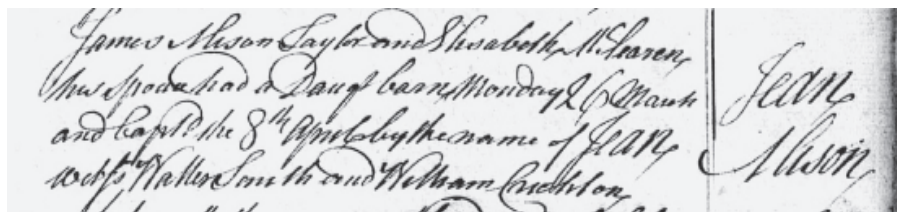 James Alison Taylor and Elisabeth McClaren
his spouse had a Daugr born Monday 26 March
and bapt'd the 8th April by the name of JEAN
witss Walter Smith and William Crichton
Jean
Alison